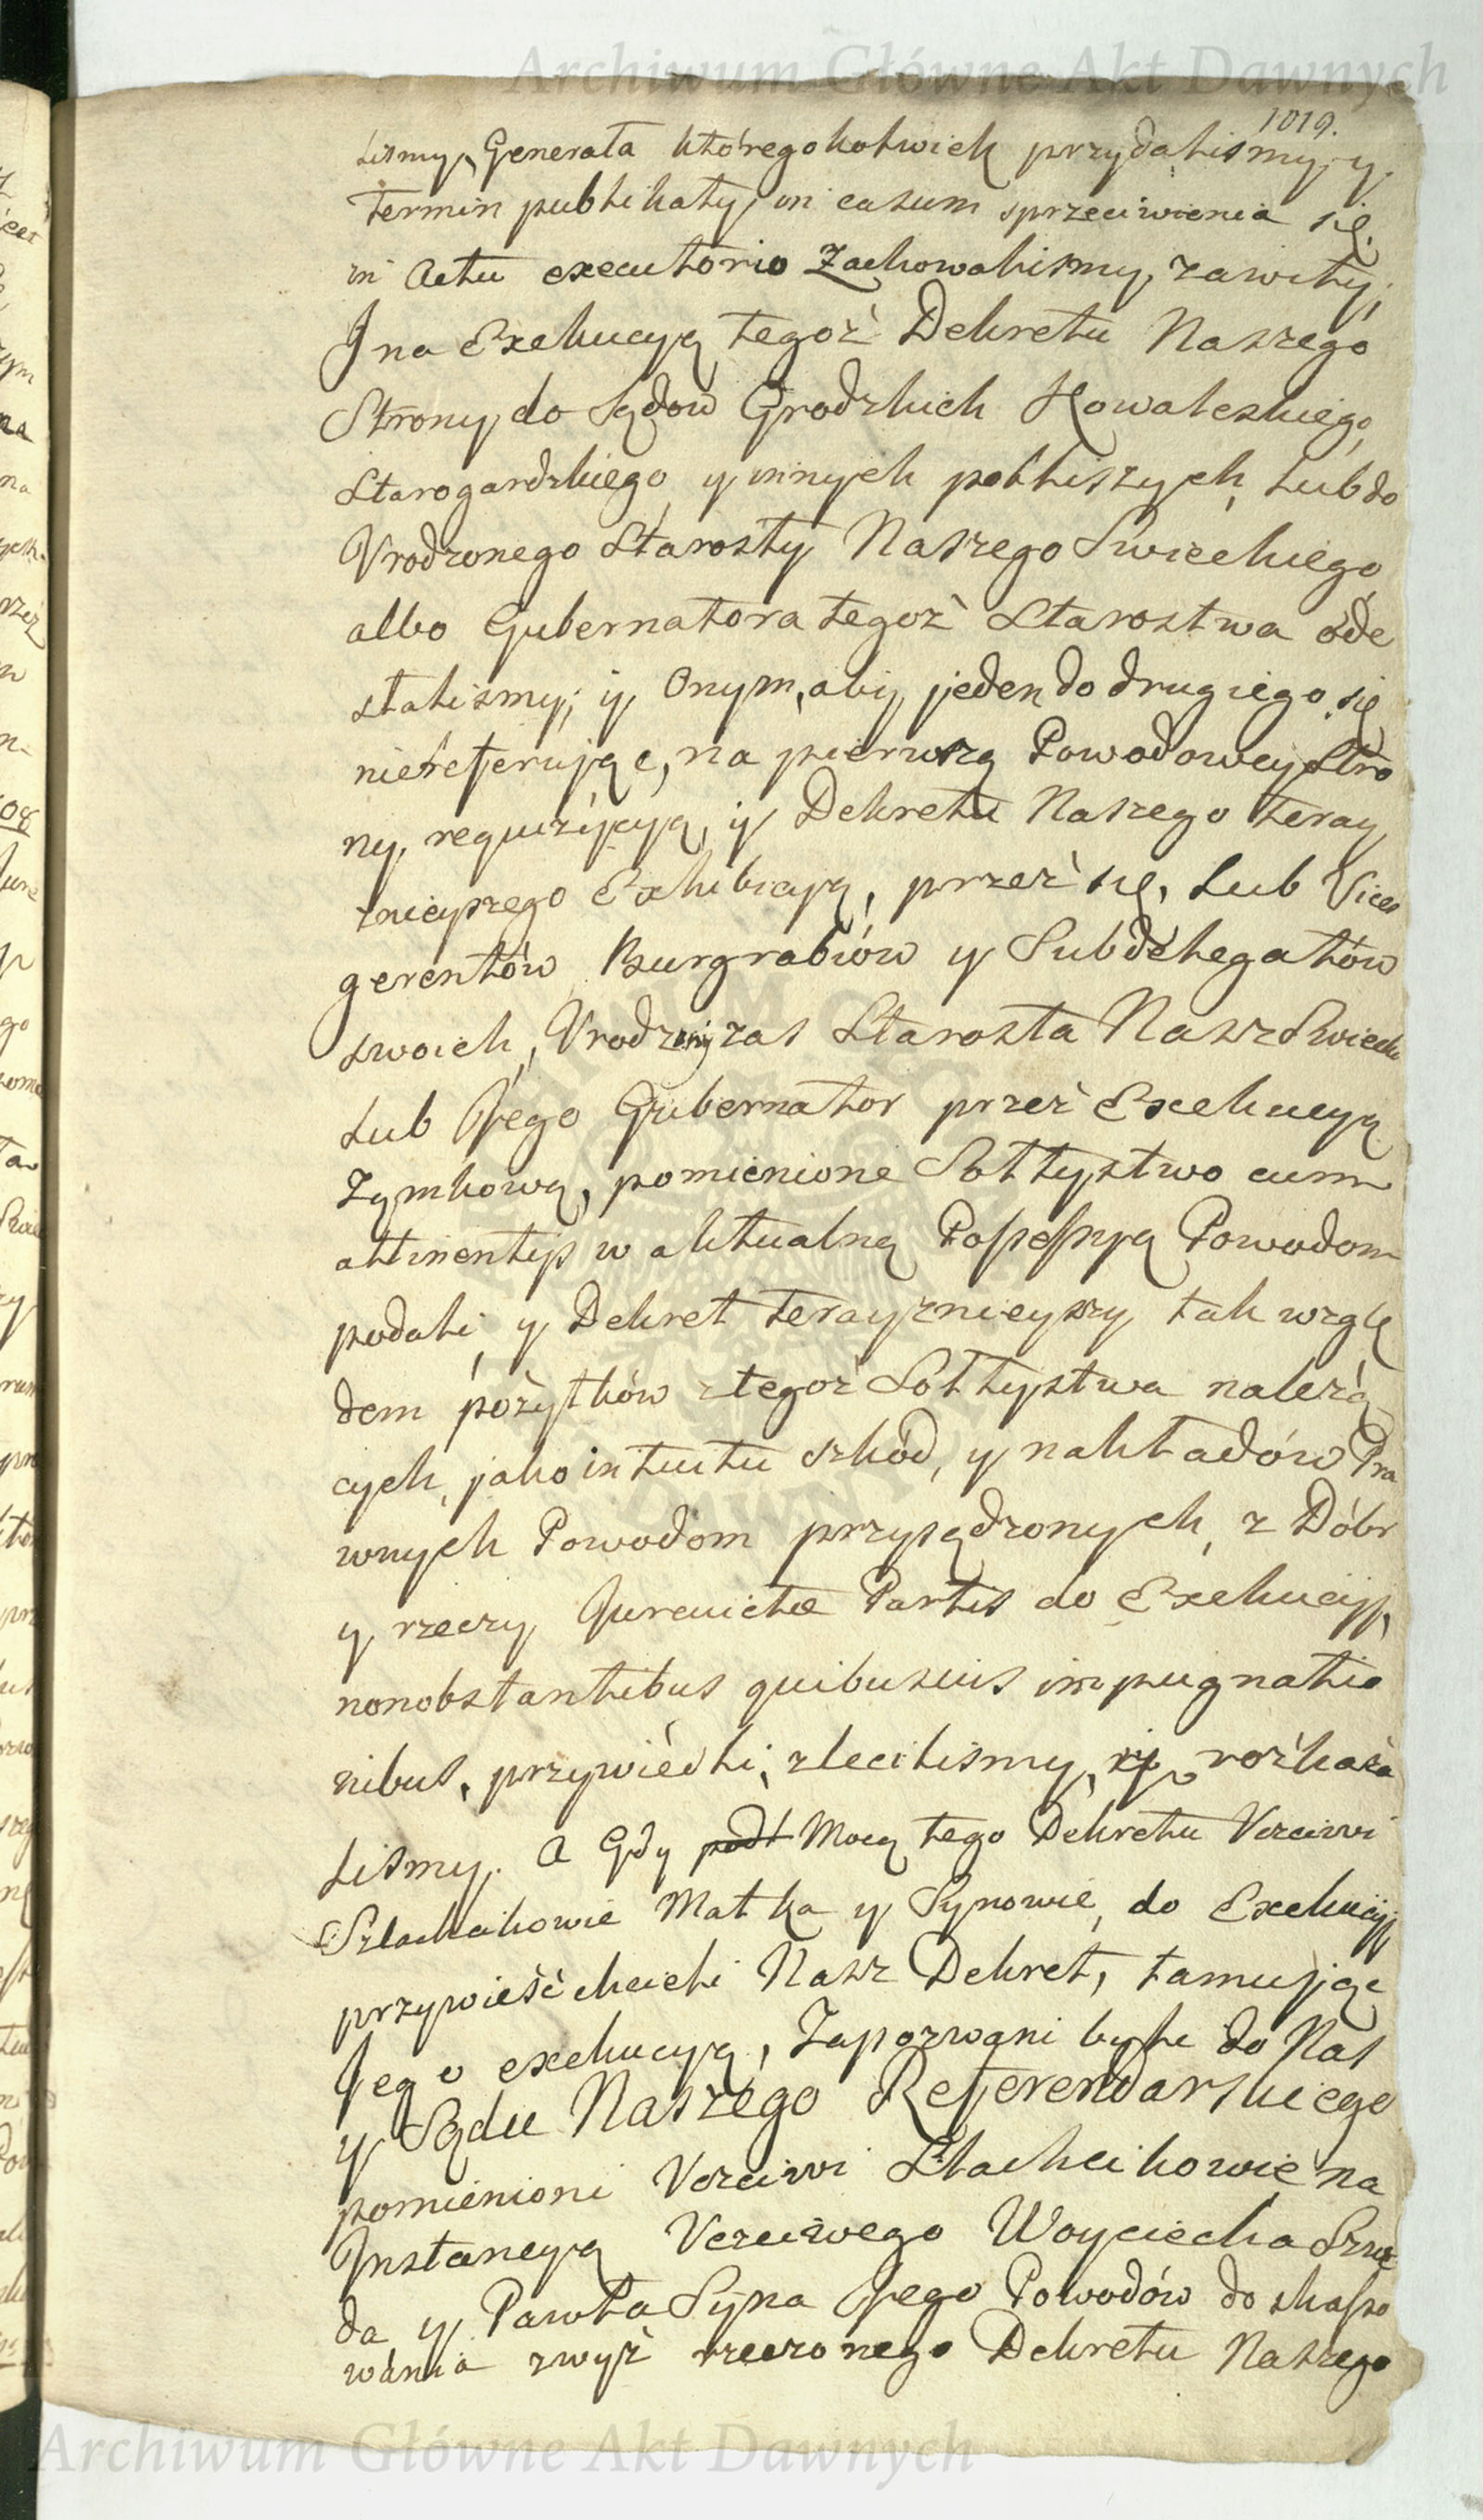 Archiwum Główne Akt Dawnych
1019.
lismy, Generała któregokolwiek przydalismy, y
termin publikaty, in casum sprzeciwienia się
in Actu executorio Zachowalismy, zawity,
I na Exekucyą tegoż Dekretu Naszego
Strony do Sądow Grodzkich Kowaleskiego,
Starogardzkiego, y innych pobliszych, lub do
Vrodzonego Starosty Naszego Swieckiego
albo Gubernatora tegoż Starostwa óde
słalismy; ÿ Onym, abÿ jeden do drugiego się
niereferując, na pierwszą Powodowey Stro
ny, requizÿcyą, ÿ Dekretu Naszego teray
znieyszego Exhibicyą, przez się, lub Vices
gerentów Burgrabiów y Subdelegatów
swoich, Vrodzony zas Starosta Nasz Swiecki
Lub Jego Gubernator przez Exekucyą
Zamkową, pomienione Sołtystwo cum
attinentijs w aktualną Possessyą Powodom
podali, y Dekret terayznieyszy tak wzglę
dem pożytków z tegoż Sołtystwa należą
cych, jako intuitu szkód, y nakładów Pra
wnych Powodom przysądzonych, z Dóbr
y rzeczy Jurevictæ Partis do Exekucyi,
nonobstantibus quibusvis impugnatio
nibus, przywiedli, zlecilismy, y rozkaza
lismy. A Gdy podł Mocą tego Dekretu Vczciwi
Szlachcikowie Matka y Synowie, do Exekucyi
przywieść chcieli Nasz Dekret, tamując
Jego exekucyą, Zapozwani byli do Nas
y Sądu Naszego Referendarskiego
pomienioni Vczciwi Szlachcikowie na
Instancyą Vczciwego Woyciecha Szwe
da y Pawła Syna Jego Powodów do skasso
wania zwyż rzeczonego Dekretu Naszego
Archiwum Główne Akt Dawnych